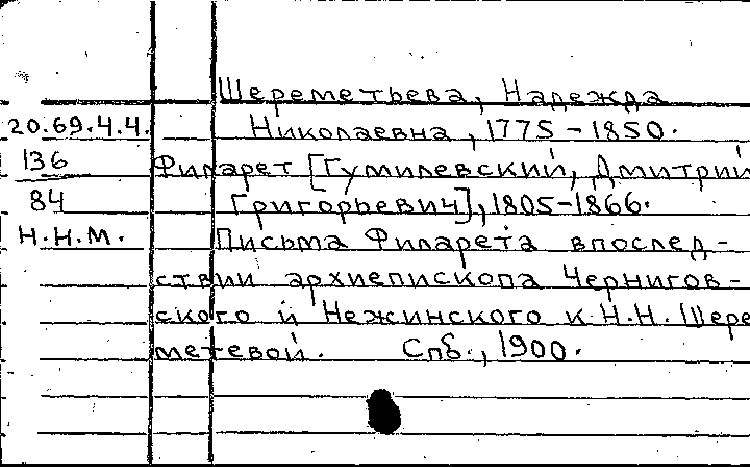 Шереметьева, Надежда
20.69.4.4. Николаевна, 1775-1850.
136 Филарет [Гумилевский, Дмитрий
84 Григорьевич], 1805-1866.
Н.Н.М. Письма Филарета впослед-
ствии архиепископа Чернигов-
ского и Нежинского к Н.Н. Шере
метевой. Спб., 1900.